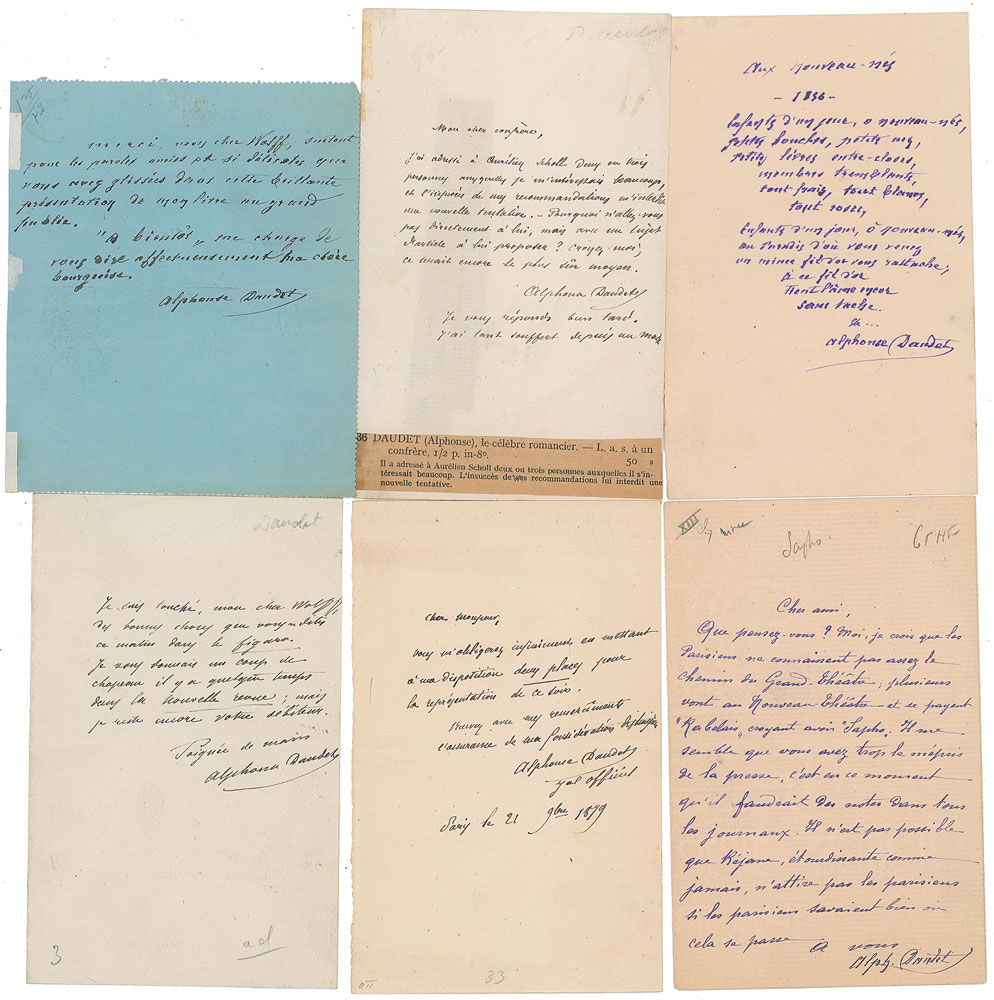 merci, mon cher Wolff, surtout
pour les paroles amies et si délicates que
vous avez glissées dans cette brillante
présentation de mon livre au grand
public.
"A bientôt" me charge de
vous dire affectueusement ma chère
bourgeoise.
Alphonse Daudet
Mon cher confrère,
j'ai adressé à Aurélien Scholl deux ou trois
personnes auxquelles je m'intéressais beaucoup,
et l'insuccès de mes recommandations m'interdit
une nouvelle tentative. — Pourquoi n'allez-vous
pas directement à lui, mais avec un sujet
d'article à lui proposer ? Croyez-moi,
ce serait encore le plus sûr moyen.
Alphonse Daudet
Je vous réponds bien tard.
J'ai tant souffert depuis un mois
36 DAUDET (Alphonse), le célèbre romancier. — L. a. s. à un
confrère, 1/2 p. in-8º.
50 »
Il a adressé à Aurélien Scholl deux ou trois personnes auxquelles il s'in-
téressait beaucoup. L'insuccès de ses recommandations lui interdit une
nouvelle tentative.
Aux Nouveau-nés
- 1856 -
Enfants d'un jour, ô nouveau-nés,
petites bouches, petits nez,
petites lèvres entre-closes,
membres tremblants
tout frais, tout blancs,
tout roses,
Enfants d'un jour, ô nouveau-nés,
au Paradis d'où vous venez
un mince fil d'or vous rattache;
à ce fil d'or
tient l'âme encor
sans tache.
Alphonse Daudet
Daudet
Je suis touché, mon cher Wolff,
des bonnes choses que vous dites
ce matin dans le figaro.
Je vous donnais un coup de
chapeau il y a quelque temps
dans la nouvelle revue ; mais
je reste encore votre débiteur.
Poignée de mains
Alphonse Daudet
3
ad
Cher Monsieur,
vous m'obligerez infiniment en mettant
à ma disposition deux places pour
la représentation de ce soir.
Recevez avec mes remerciments
l'assurance de ma considération distinguée
Alphonse Daudet
Jal officiel
Paris le 21 9bre 1879
33
XIII
Sapho.
Cher ami,
Que pensez-vous ? Moi, je crois que les
Parisiens ne connaissent pas assez le
chemin du Grand-Théâtre ; plusieurs
vont au Nouveau Théâtre et se payent
"Rabelais, croyant avoir "Sapho. Il me
semble que vous avez trop le mépris
de la presse, c'est en ce moment
qu'il faudrait des notes dans tous
les journaux. Il n'est pas possible
que Réjane, étourdissante comme
jamais, n'attire pas les parisiens
si les parisiens savaient bien où
cela se passe
A vous
Alph. Daudet